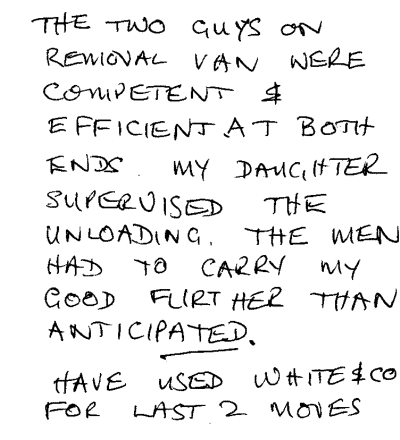 THE TWO GUYS ON
REMOVAL VAN WERE
COMPETENT &
EFFICIENT AT BOTH
ENDS. MY DAUGHTER
SUPERVISED THE
UNLOADING. THE MEN
HAD TO CARRY MY
GOOD FURTHER THAN
ANTICIPATED.
HAVE USED WHITE & CO
FOR LAST 2 MOVES